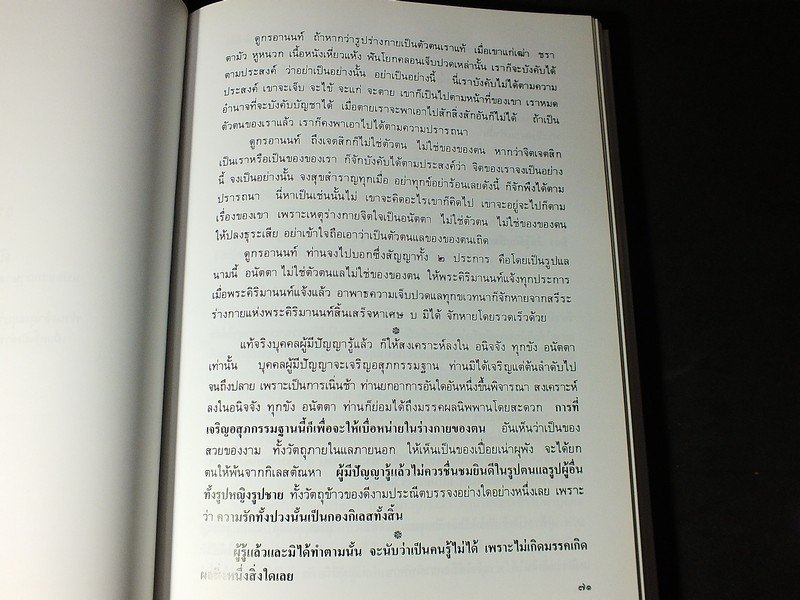 ดูกรอานนท์ ถ้าหากว่ารูปร่างกายเป็นตัวตนเราแท้ เมื่อเขาแก่เฒ่า ชรา
ตามัว หูหนวก เนื้อหนังเหี่ยวแห้ง ฟันโยกคลอนเจ็บปวดเหล่านั้น เราก็จะบังคับได้
ตามประสงค์ ว่าอย่าเป็นอย่างนั้น อย่าเป็นอย่างนี้ นี่เราบังคับไม่ได้ตามความ
ประสงค์ เขาจะเจ็บ จะไข้ จะแก่ จะตาย เขาก็เป็นไปตามหน้าที่ของเขา เราหมด
อำนาจที่จะบังคับบัญชาได้ เมื่อตายเราจะพาเอาไปสักสิ่งสักอันก็ไม่ได้ ถ้าเป็น
ตัวตนของเราแล้ว เราก็คงพาเอาไปได้ตามความปรารถนา
ดูกรอานนท์ ถึงเจตสิกก็ไม่ใช่ตัวตน ไม่ใช่ของของตน หากว่าจิตเจตสิก
เป็นเราหรือเป็นของของเรา ก็จักบังคับได้ตามประสงค์ว่า จิตของเราจงเป็นอย่าง
นี้ จงเป็นอย่างนั้น จงสุขสำราญทุกเมื่อ อย่าทุกข์อย่าร้อนเลยดังนี้ ก็จักพึงได้ตาม
ปรารถนา นี่หาเป็นเช่นนั้นไม่ เขาจะคิดอะไรเขาก็คิดไป เขาจะอยู่จะไปก็ตาม
เรื่องของเขา เพราะเหตุร่างกายจิตใจเป็นอนัตตา ไม่ใช่ตัวตน ไม่ใช่ของของตน
ให้ปลงธุระเสีย อย่าเข้าใจถือเอาว่าเป็นตัวตนแลของของตนเถิด
ดูกรอานนท์ ท่านจงไปบอกซึ่งสัญญาทั้ง ๒ ประการ คือโดยเป็นรูปแล
นามนี้ อนัตตา ไม่ใช่ตัวตนแลไม่ใช่ของของตน ให้พระคิริมานนท์แจ้งทุกประการ
เมื่อพระคิริมานนท์แจ้งแล้ว อาพาธความเจ็บปวดแลทุกขเวทนาก็จักหายจากสรีระ
ร่างกายแห่งพระคิริมานนท์สิ้นเสร็จหาเศษ บ มิได้ จักหายโดยรวดเร็วด้วย
แท้จริงบุคคลผู้มีปัญญารู้แล้ว ก็ให้สงเคราะห์ลงใน อนิจจัง ทุกขัง อนัตตา
เท่านั้น บุคคลผู้มีปัญญาจะเจริญอสุภกรรมฐาน ท่านมิได้เจริญแต่ต้นลำดับไป
จนถึงปลาย เพราะเป็นการเนิ่นช้า ท่านยกอาการอันใดอันหนึ่งขึ้นพิจารณา สงเคราะห์
ลงในอนิจจัง ทุกขัง อนัตตา ท่านก็ย่อมได้ถึงมรรคผลนิพพานโดยสะดวก การที่
เจริญอสุภกรรมฐานนี้ก็เพื่อจะให้เบื่อหน่ายในร่างกายของตน อันเห็นว่าเป็นของ
สวยของงาม ทั้งวัตถุภายในแลภายนอก ให้เห็นเป็นของเปื่อยเน่าผุพัง จะได้ยก
ตนให้พ้นจากกิเลสตัณหา ผู้มีปัญญารู้แล้วไม่ควรชื่นชมยินดีในรูปตนแลรูปผู้อื่น
ทั้งรูปหญิงรูปชาย ทั้งวัตถุข้าวของดีงามประณีตบรรจงอย่างใดอย่างหนึ่งเลย เพราะ
ว่า ความรักทั้งปวงนั้นเป็นกองกิเลสทั้งสิ้น
ผู้รู้แล้วและมิได้ทำตามนั้น จะนับว่าเป็นคนรู้ไม่ได้ เพราะไม่เกิดมรรคเกิด
ผลสิ่งหนึ่งสิ่งใดเลย
๗๑